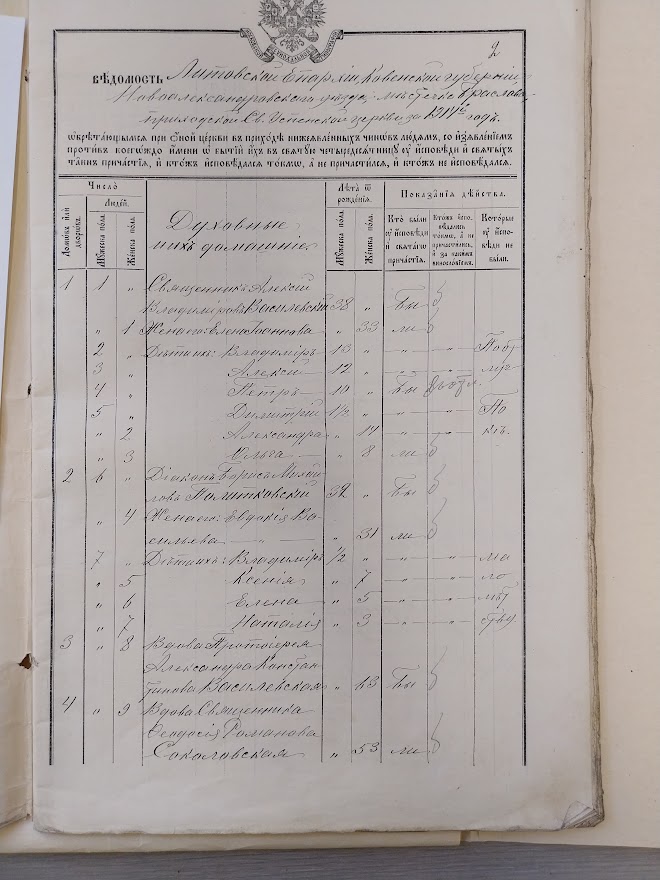 2
ВѢДОМОСТЬ Литовской Епархіи Ковенской губерніи
Новоалександровскаго уѣзда мѣстечка Браслава
приходской Св. Успенской церкви за 1914й годъ.
ѡбрѣтающымсѧ при сѐной церкви въ приходѣ нижеѧвленныхъ чиновъ людѧмъ, со изъѧвленіемъ
противъ коегѡждо имени ѡ бытіи ихъ въ свѧтую четыредесѧтницу ѹ исповѣди и свѧтыхъ
таинъ причастіѧ, и ктожъ исповѣдалсѧ токмѡ, а не причастилсѧ, и ктожъ не исповѣдалсѧ.
Число
Людей.
Домѡвъ или дворѡвъ.
Мꙋжеска пола.
Женска пола.
Духовные и
ихъ домашніе
Лѣта ѿ рожденіѧ.
Мꙋжеска пола.
Женска пола.
Показаніѧ дѣйства.
Кто были ѹ исповѣди и свѧтагѡ причастіѧ.
Ктожъ исповѣдались токмѡ, а не причастились, и за какимъ винословіемъ.
Которые ѹ исповѣди не были.
1 1 " Священникъ Алексій
Владиміровъ Василевскій 38 " Бы
" 1 Жена его: Елена Іоаннова " 33 ли
2 " Дѣти ихъ: Владиміръ 13 " " "
3 " Алексій 12 " " "
4 " Петръ 10 " Бы
5 " Димитрій 1½ " " " По
" 2 Александра " 14 " "
" 3 Ольга " 8 ли
2 6 " Діаконъ Борисъ Михай
ловъ Политковскій 32 " Бы
" 4 Жена его: Евдокія Ва
сильева " 31 ли
7 " Дѣти ихъ: Владиміръ ½ " " " ма
" 5 Ксенія " 7 " " ло
" 6 Елена " 5 " " лѣт
" 7 Наталія " 3 " " ству
3 " 8 Вдова Протоіерея
Александра Констан
тинова Василевская " 63 Бы
4 " 9 Вдова Священника
Ѳеодосія Романова
Соколовская " 53 ли